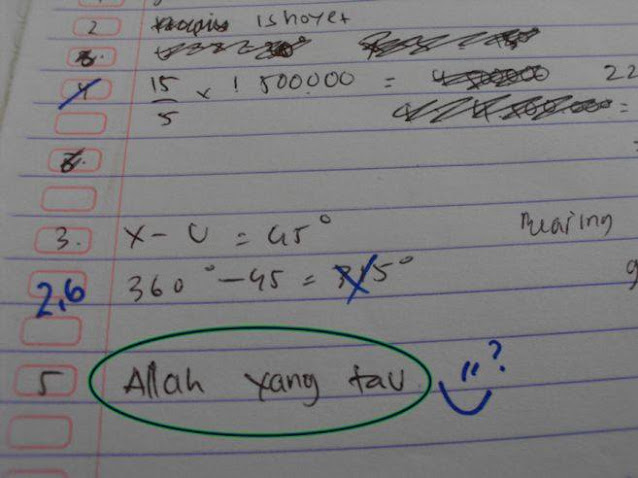 2 Ishoyet
3.
4 15/5 x 1 500000 = 22
3. x - U = 45° Bearing
2,6 360° - 45 = 315° 9
5 Allah yang tau ?